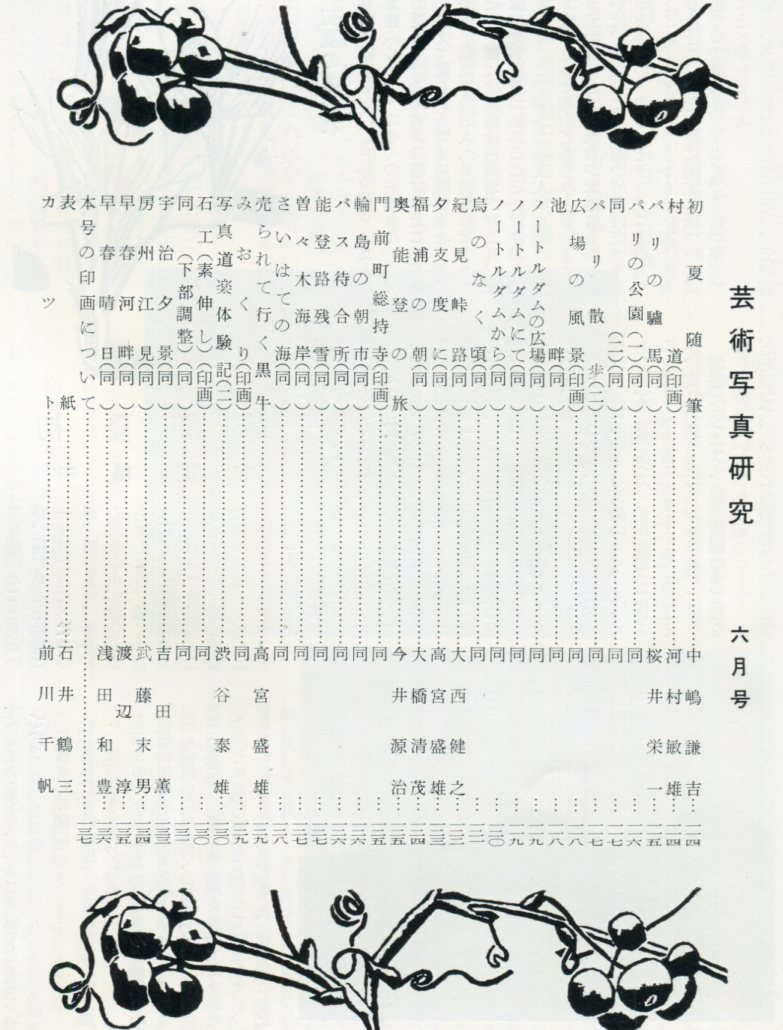 芸術写真研究　六月号
初夏随筆……中嶋謙吉……一一四
村道(印画)……河村敏雄……一一四
パリの驢馬(同)……桜井栄一……一一五
パリの公園(一)(同)……同……一一六
同(二)(同)……同……一一六
パリ散歩(二)……同……一一七
広場の風景(印画)……同……一一八
池畔(同)……同……一一八
ノートルダムの広場(同)……同……一一九
ノートルダムにて(同)……同……一一九
ノートルダムから(同)……同……一二〇
烏のなく頃(同)……同……一二一
紀見峠路(同)……大西健之……一二二
夕支度に(同)……高宮盛雄……一二三
福浦の朝(同)……大橋清茂……一二四
奥能登の旅……今井源治……一二五
門前町総持寺(印画)……同……一二五
輪島の朝市(同)……同……一二六
バス待合所(同)……同……一二六
能登路残雪(同)……同……一二七
曽々木海岸(同)……同……一二七
さいはての海(同)……同……一二八
売られて行く黒牛……高宮盛雄……一二九
みおくり(印画)……同……一二九
写真道楽体験記(二)……渋谷泰雄……一三〇
石工(素伸し)(印画)……同……一三〇
同(下部調整)(同)……同……一三一
宇治夕景(同)……吉田薫……一三三
房州江見(同)……武藤末男……一三四
早春河畔(同)……渡辺淳……一三五
早春晴日(同)……浅田和豊……一三六
本号の印画について……一三七
表紙……石井鶴三
カット……前川千帆